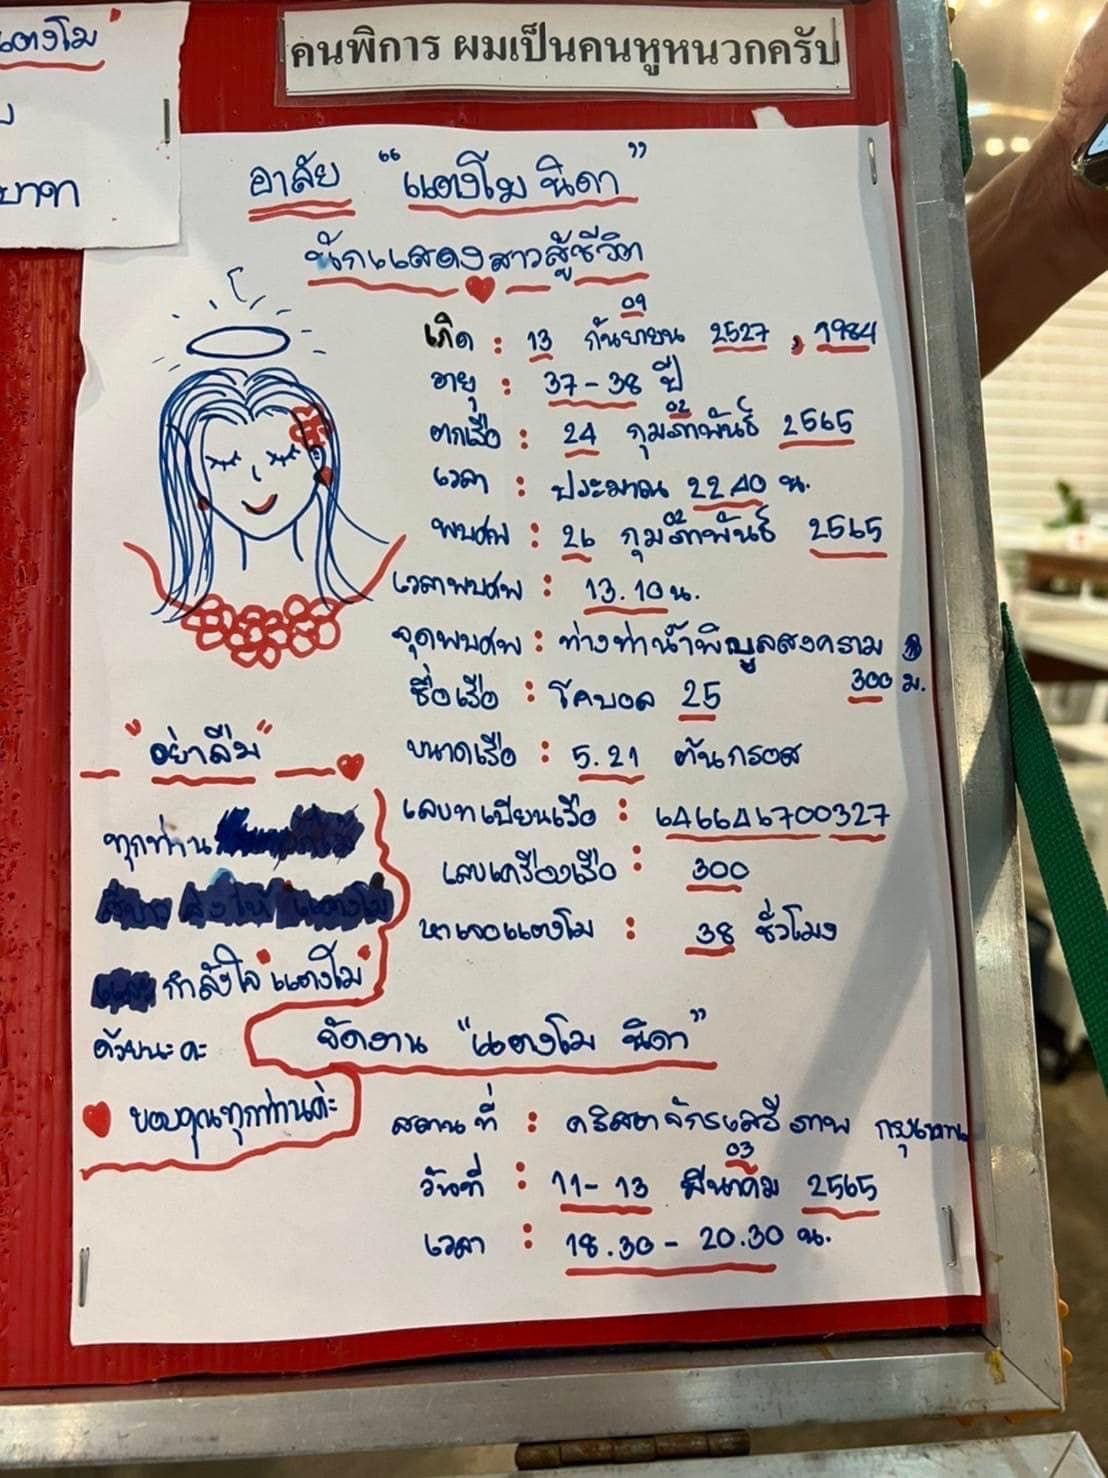 แตงโม"
บาท
คนพิการ ผมเป็นคนหูหนวกครับ
อาลัย "แตงโม นิดา"
นักแสดงสาวสู้ชีวิต
09
เกิด : 13 กันยายน 2527 , 1984
อายุ : 37-38 ปี
02
ตกเรือ : 24 กุมภาพันธ์ 2565
เวลา : ประมาณ 22.40 น.
02
พบศพ : 26 กุมภาพันธ์ 2565
เวลาพบศพ : 13.10 น.
จุดพบศพ : ห่างท่าน้ำพิบูลสงคราม
300 ม.
ชื่อเรือ : โคบอล 25
ขนาดเรือ : 5.21 ตันกรอส
เลขทะเบียนเรือ : 646646700327
เลขเครื่องเรือ : 300
หาเจอแตงโม : 38 ชั่วโมง
"อย่าลืม"
ทุกท่าน
กำลังใจ "แตงโม"
ด้วยนะคะ
ขอบคุณทุกท่านค่ะ
จัดงาน "แตงโม นิดา"
สถานที่ : คริสตจักรเสรีภาพ กรุงเทพ
03
วันที่ : 11-13 มีนาคม 2565
เวลา : 18.30 - 20.30 น.